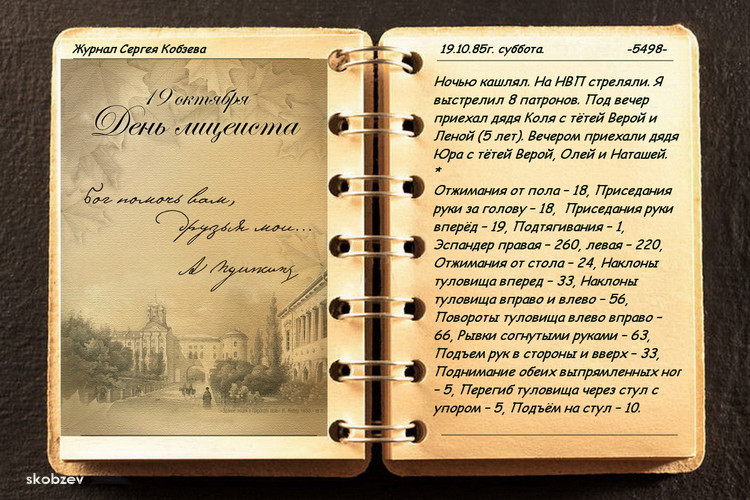 Журнал Сергея Кобзева
19 октября
День лицеиста
Бог помочь вам,
друзья мои...
А Пушкин
19.10.85г. суббота. -5498-
Ночью кашлял. На НВП стреляли. Я
выстрелил 8 патронов. Под вечер
приехал дядя Коля с тётей Верой и
Леной (5 лет). Вечером приехали дядя
Юра с тётей Верой, Олей и Наташей.
*
Отжимания от пола – 18, Приседания
руки за голову – 18, Приседания руки
вперёд – 19, Подтягивания – 1,
Эспандер правая – 260, левая – 220,
Отжимания от стола – 24, Наклоны
туловища вперед – 33, Наклоны
туловища вправо и влево – 56,
Повороты туловища влево вправо –
66, Рывки согнутыми руками – 63,
Подъем рук в стороны и вверх – 33,
Поднимание обеих выпрямленных ног
– 5, Перегиб туловища через стул с
упором – 5, Подъём на стул – 10.
skobzev